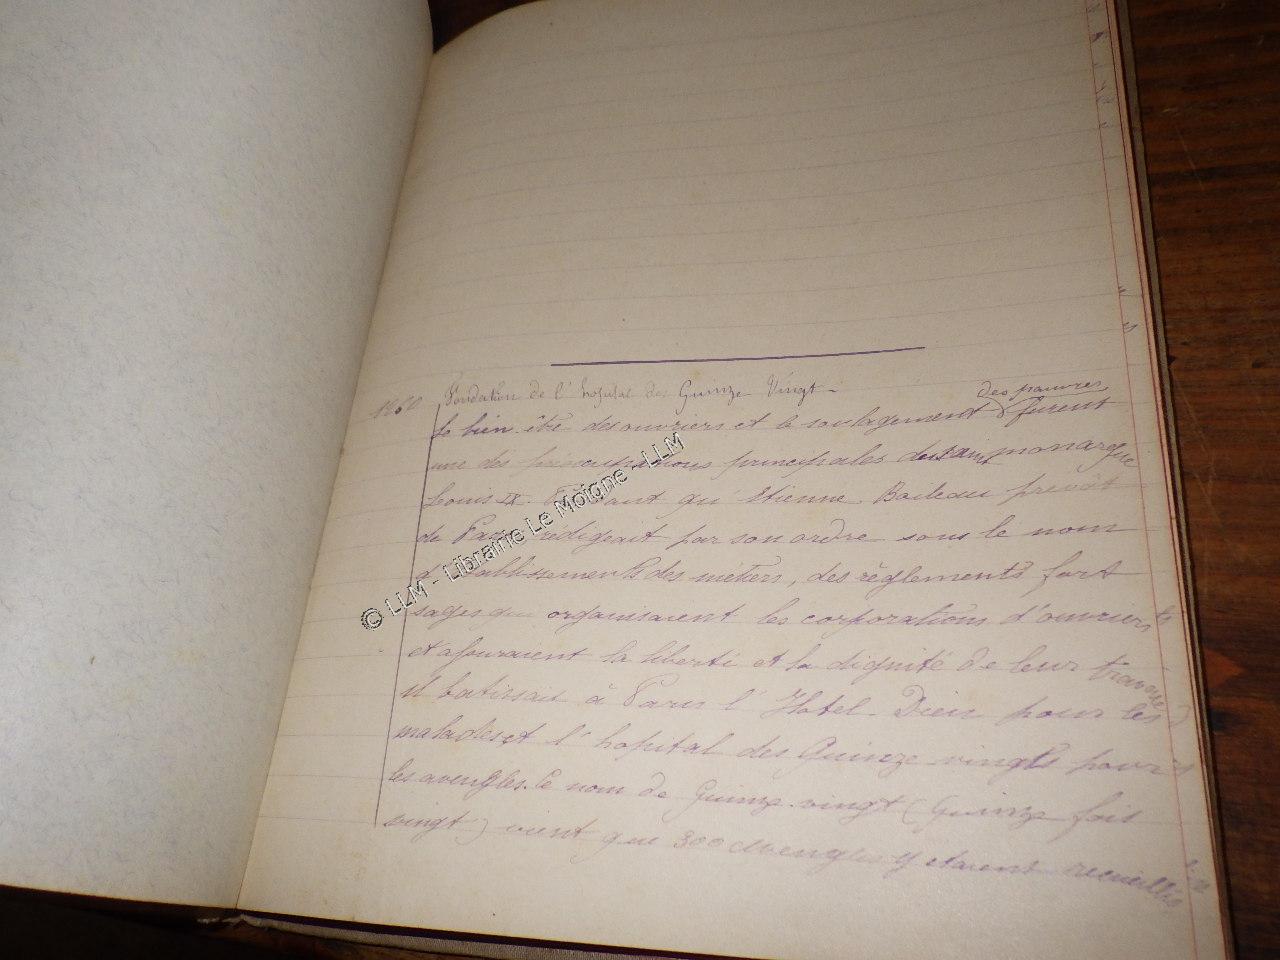 Fondation de l'hopital des Quinze Vingt -
1260
des pauvres
Le bien être des ouvriers et le soulagement furent
une des préoccupations principales du saint monarque
Louis IX. qu'Etienne Boileau prevôt
de rédigeait par son ordre sous le nom
des métiers, des règlements fort
sages qui organisaient les corporations d'ouvriers
et assuraient la liberté et la dignité de leur travail
il batissait à Paris l'Hotel-Dieu pour les
malades et l'hopital des Quinze-vingts pour
les aveugles. Ce nom de Quinze-vingt (Quinze fois
vingt) vient que 300 aveugles y etaient recueillis
© LLM - Librairie Le Moigne - LLM